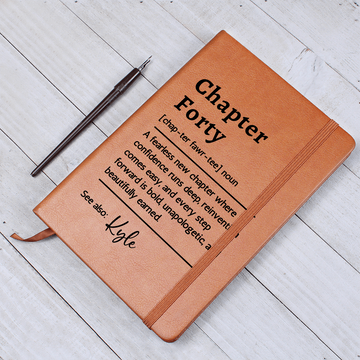 Chapter
Forty
[chap-ter fawr-tee] noun
A fearless new chapter where
confidence runs deep, reinvention
comes easy, and every step
forward is bold, unapologetic, a
beautifully earned.
See also:
Kyle